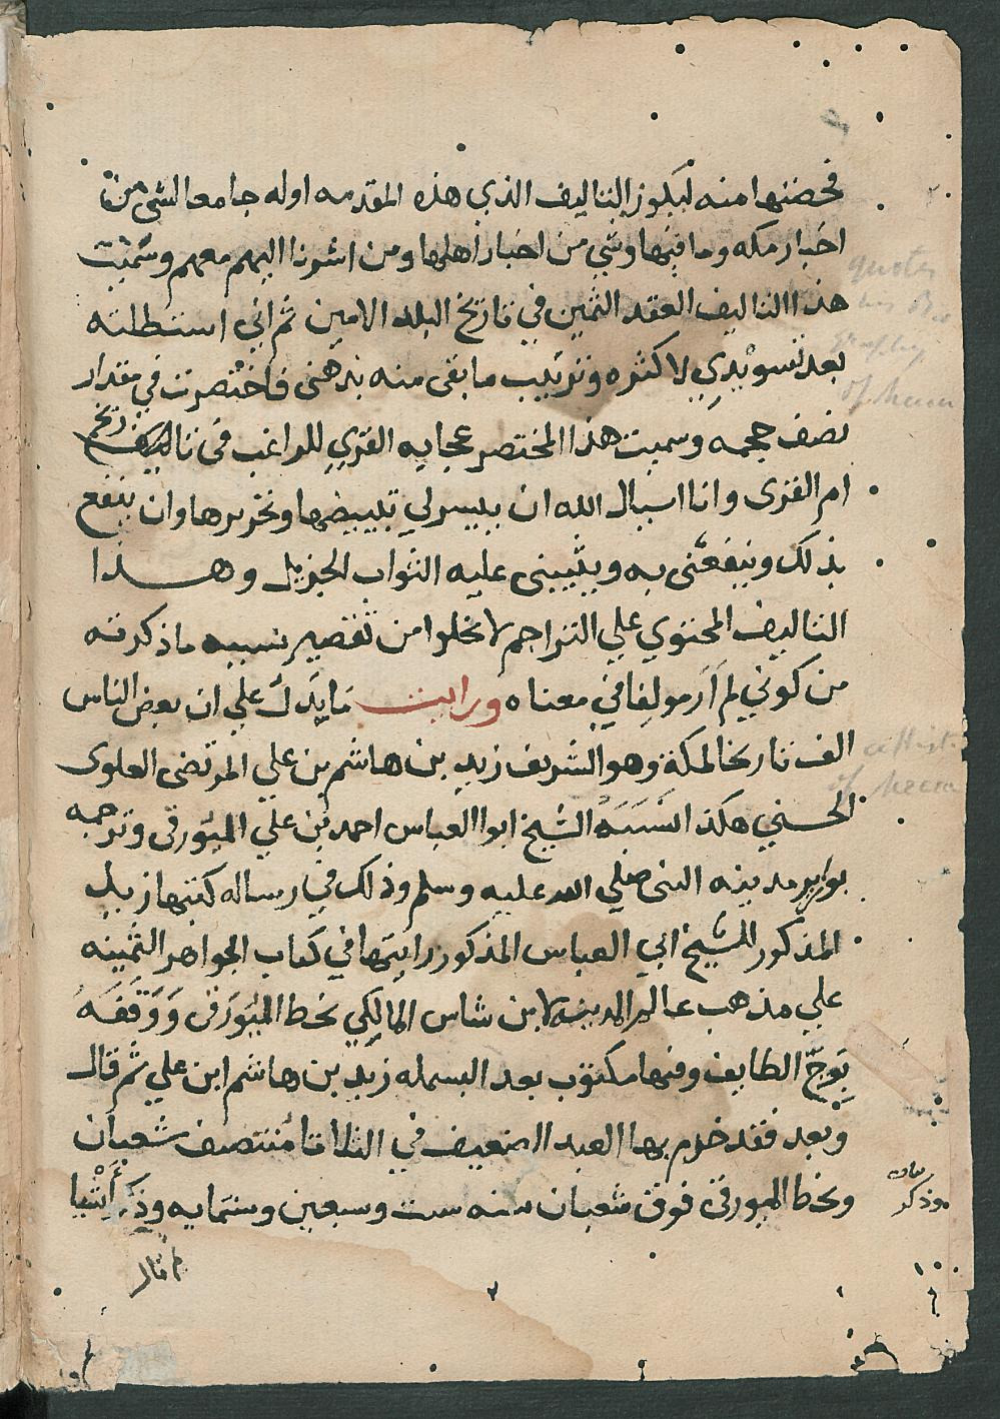 فحضنها منه ليكون التاليف الذي هذه المقدمه اوله جامعا لشى من
اخبار مكه وما فيها وشي من اخبار اهلها ومن اشرنا اليهم معهم وسميت
هذا التاليف العقد الثمين في تاريخ البلد الامين ثم اني استطلته
بعد تسويدي لاكثره وترتيب ما بقى منه بذهنى فاختصرت في مقدار
نصف حجمه وسميت هذا المختصر عجايه القري للراغب فى تاريخ
ام القرى وانا اسال الله ان ييسر لي تبييضها وتحريرها وان ينفع
بذلك وينفعنى به ويثيبنى عليه الثواب الجزيل وهذا
التاليف المحتوي علي التراجم لا يخلوا من تقصير بسببه ما ذكرته
من كوني لم ار مولفا في معناه ورايت ما يدل علي ان بعض الناس
الف تاريخا لمكة وهو الشريف زيد بن هاشم بن علي المرتضى العلوى
الحسني هكذا نسبه الشيخ ابوا العباس احمد بن علي الميورقى وترجمه
بوزير مدينه النبى صلي الله عليه وسلم وذلك في رساله كتبها زيد
المذكور للشيخ ابي العباس المذكور رايتها في كتاب الجواهر الثمينه
علي مذهب عالم المدينه لابن شاس المالكي بخط الميورقى ووقفه
بوج الطايف وفيها مكتوب بعد البسمله زيد بن هاشم ابن علي ثم قال
وبعد فقد خدم بها العبد الضعيف في الثلاثا منتصف شعبان
وبخط الميورقى فوق شعبان سنه ست وسبعين وستمايه وذكر اشيا
وذكر
ثم قال
quotes
of Mecca
a Hist.
of Mecca